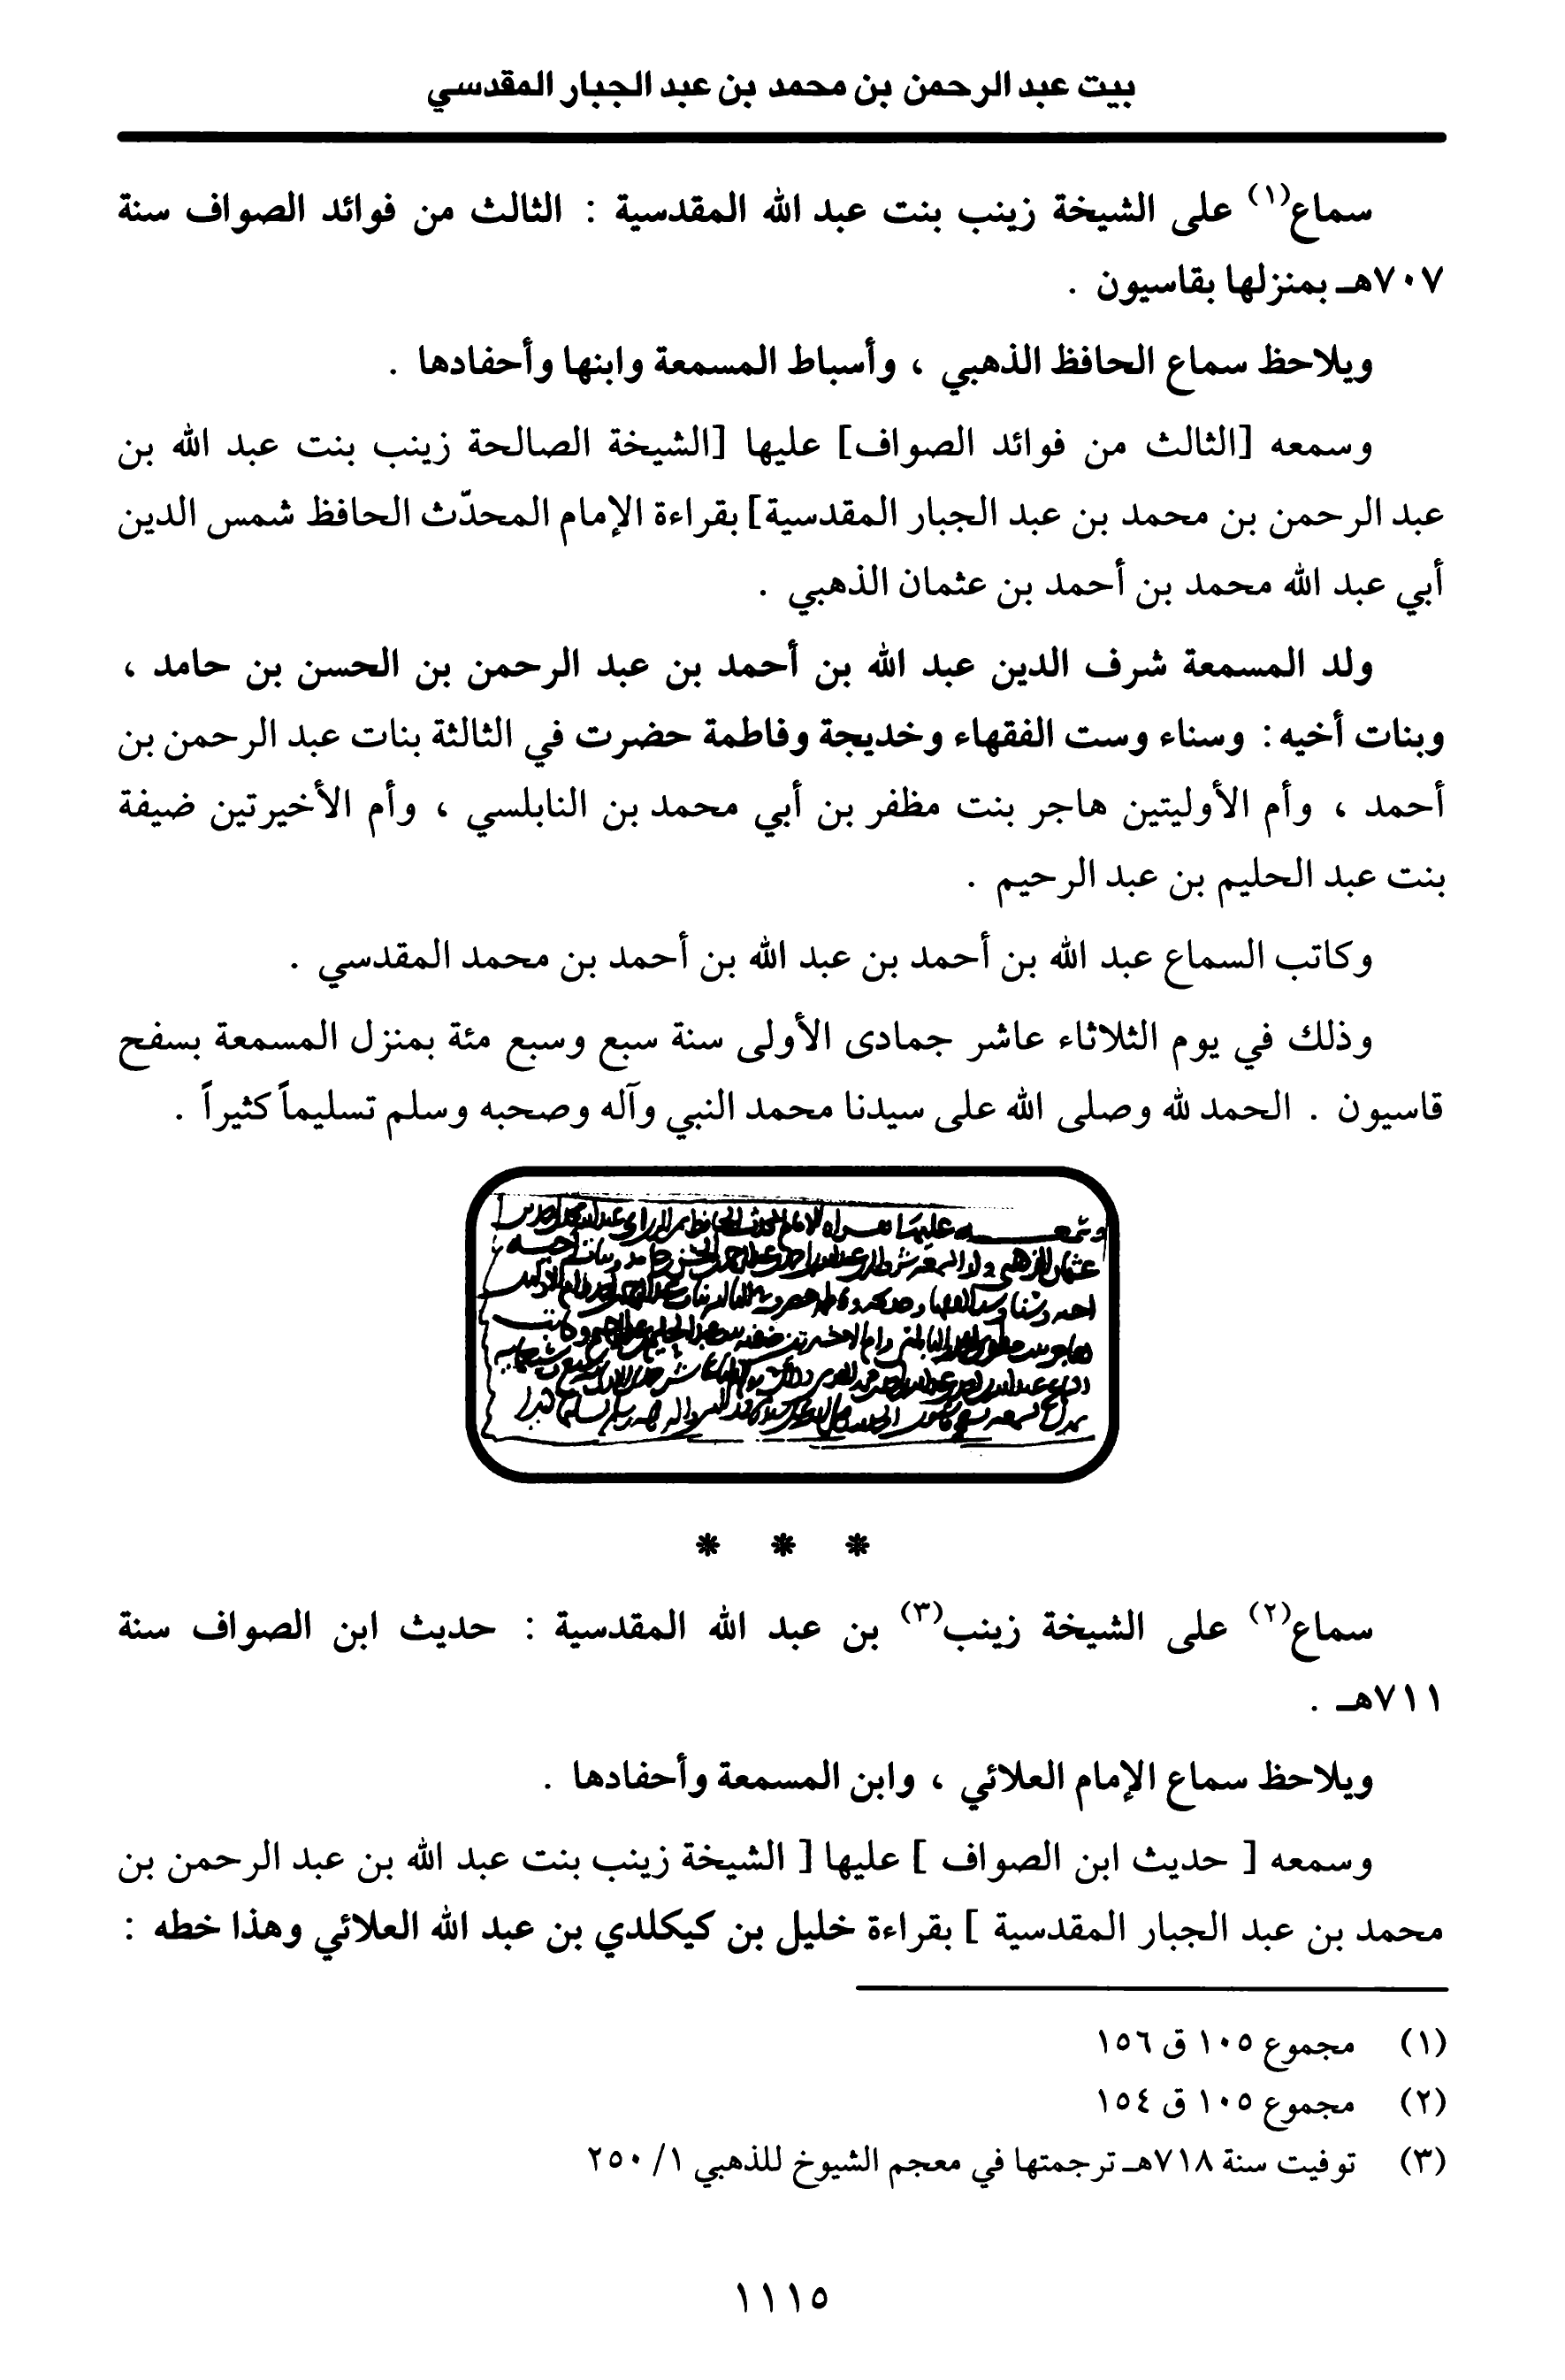 بيت عبد الرحمن بن محمد بن عبد الجبار المقدسي
سماع(١) على الشيخة زينب بنت عبد الله المقدسية : الثالث من فوائد الصواف سنة
٧٠٧هـ بمنزلها بقاسيون .
ويلاحظ سماع الحافظ الذهبي ، وأسباط المسمعة وابنها وأحفادها .
وسمعه [الثالث من فوائد الصواف] عليها [الشيخة الصالحة زينب بنت عبد الله بن
عبد الرحمن بن محمد بن عبد الجبار المقدسية] بقراءة الإمام المحدّث الحافظ شمس الدين
أبي عبد الله محمد بن أحمد بن عثمان الذهبي .
ولد المسمعة شرف الدين عبد الله بن أحمد بن عبد الرحمن بن الحسن بن حامد ،
وبنات أخيه : وسناء وست الفقهاء وخديجة وفاطمة حضرت في الثالثة بنات عبد الرحمن بن
أحمد ، وأم الأوليتين هاجر بنت مظفر بن أبي محمد بن النابلسي ، وأم الأخيرتين ضيفة
بنت عبد الحليم بن عبد الرحيم .
وكاتب السماع عبد الله بن أحمد بن عبد الله بن أحمد بن محمد المقدسي .
وذلك في يوم الثلاثاء عاشر جمادى الأولى سنة سبع وسبع مئة بمنزل المسمعة بسفح
قاسيون . الحمد لله وصلى الله على سيدنا محمد النبي وآله وصحبه وسلم تسليماً كثيراً .
* * *
سماع(٢) على الشيخة زينب(٣) بن عبد الله المقدسية : حديث ابن الصواف سنة
٧١١هـ .
ويلاحظ سماع الإمام العلائي ، وابن المسمعة وأحفادها .
وسمعه [ حديث ابن الصواف ] عليها [ الشيخة زينب بنت عبد الله بن عبد الرحمن بن
محمد بن عبد الجبار المقدسية ] بقراءة خليل بن كيكلدي بن عبد الله العلائي وهذا خطه :
(١) مجموع ١٠٥ ق ١٥٦
(٢) مجموع ١٠٥ ق ١٥٤
(٣) توفيت سنة ٧١٨هـ ترجمتها في معجم الشيوخ للذهبي ١/ ٢٥٠
١١١٥